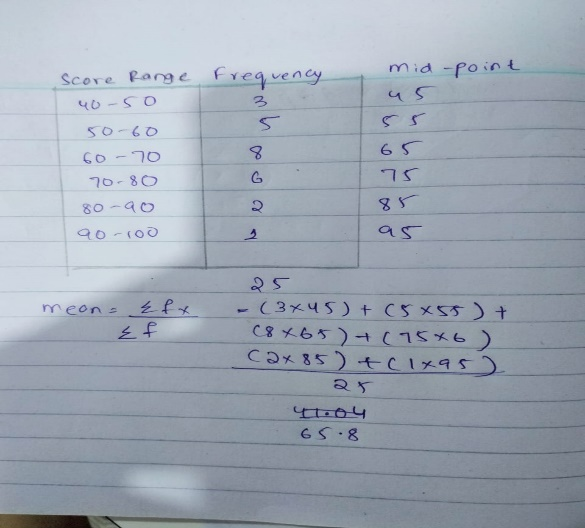 Score Range Frequency mid-point
40-50 3 45
50-60 5 55
60-70 8 65
70-80 6 75
80-90 2 85
90-100 1 95
25
mean = Σfx = (3x45) + (5x55) +
Σf (8x65) + (75x6)
(2x85) + (1x95)
25
41.04
65.8